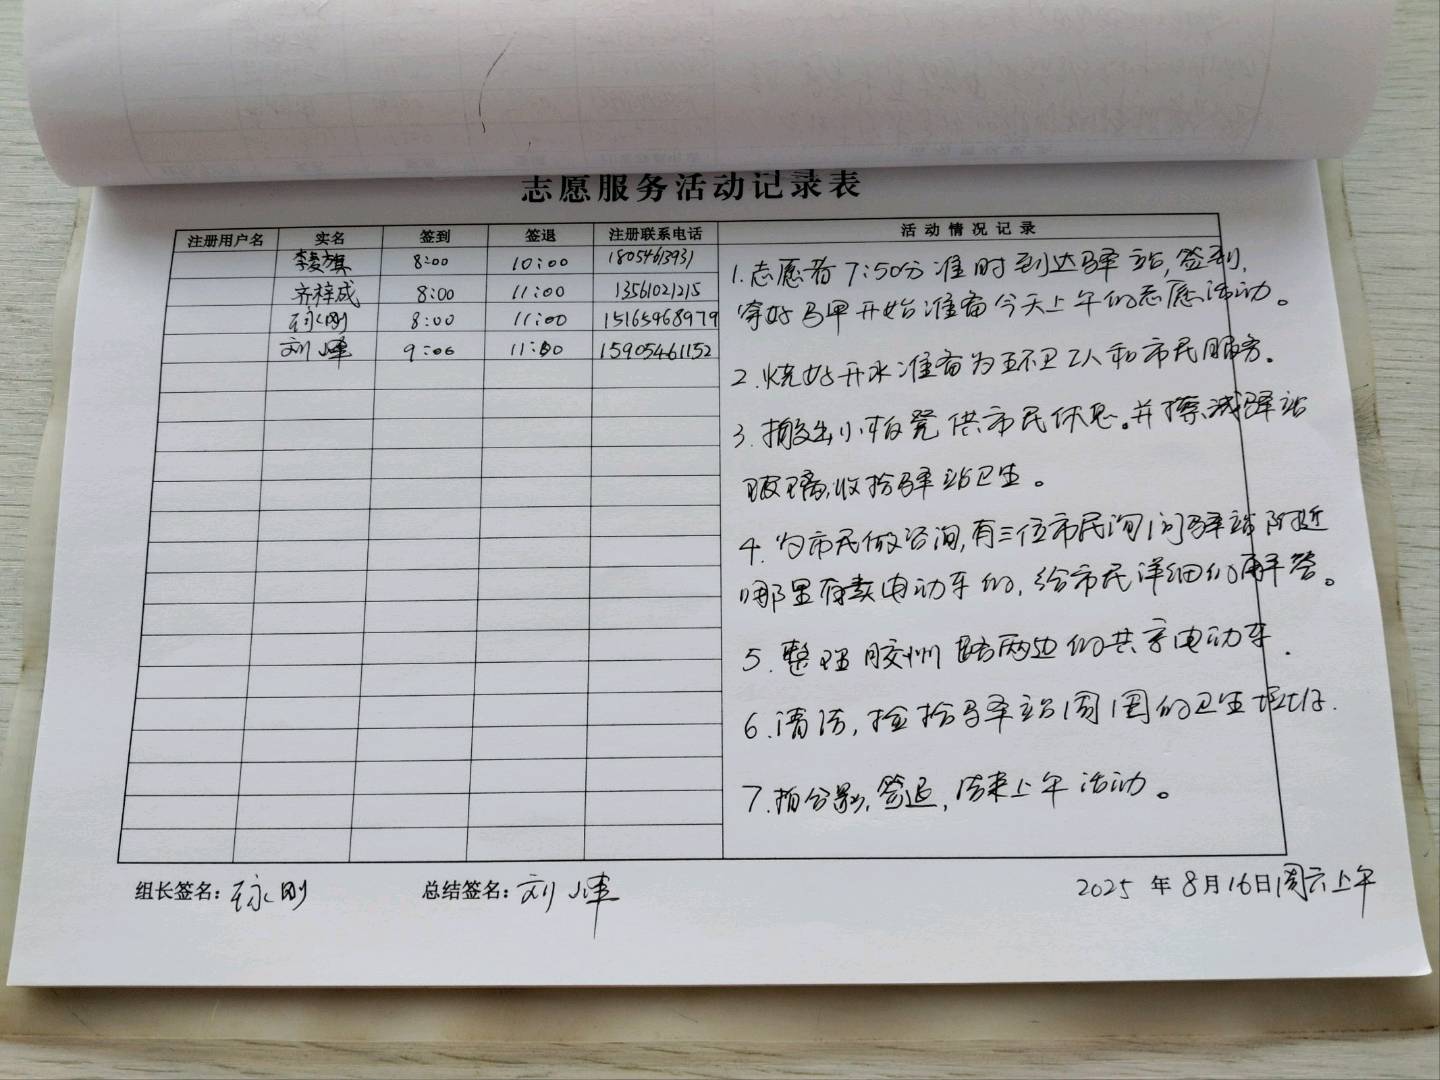 志愿服务活动记录表
注册用户名 实名 签到 签退 注册联系电话 活动情况记录
8:00 10:00 1805463931
齐梓成 8:00 11:00 13561021215
刚 8:00 11:00 15165468979
刘 9:00 11:00 15905461152
1.志愿者7:50分准时到达驿站,签到,
拿好马甲开始准备今天上午的志愿活动。
2.烧好开水准备为环卫工人和市民服务。
3.搬出小板凳供市民休息。并擦驿站
玻璃,收拾驿站卫生。
4.为市民做咨询,有三位市民询问驿站附近
哪里有卖电动车的,给市民详细的解答。
5.整理胶州路两边的共享电动车.
6.清洁,捡拾驿站周围的卫生垃圾.
7.拍合影,签退,结束上午活动。
组长签名: 刚 总结签名: 刘
2025年8月16日周六上午